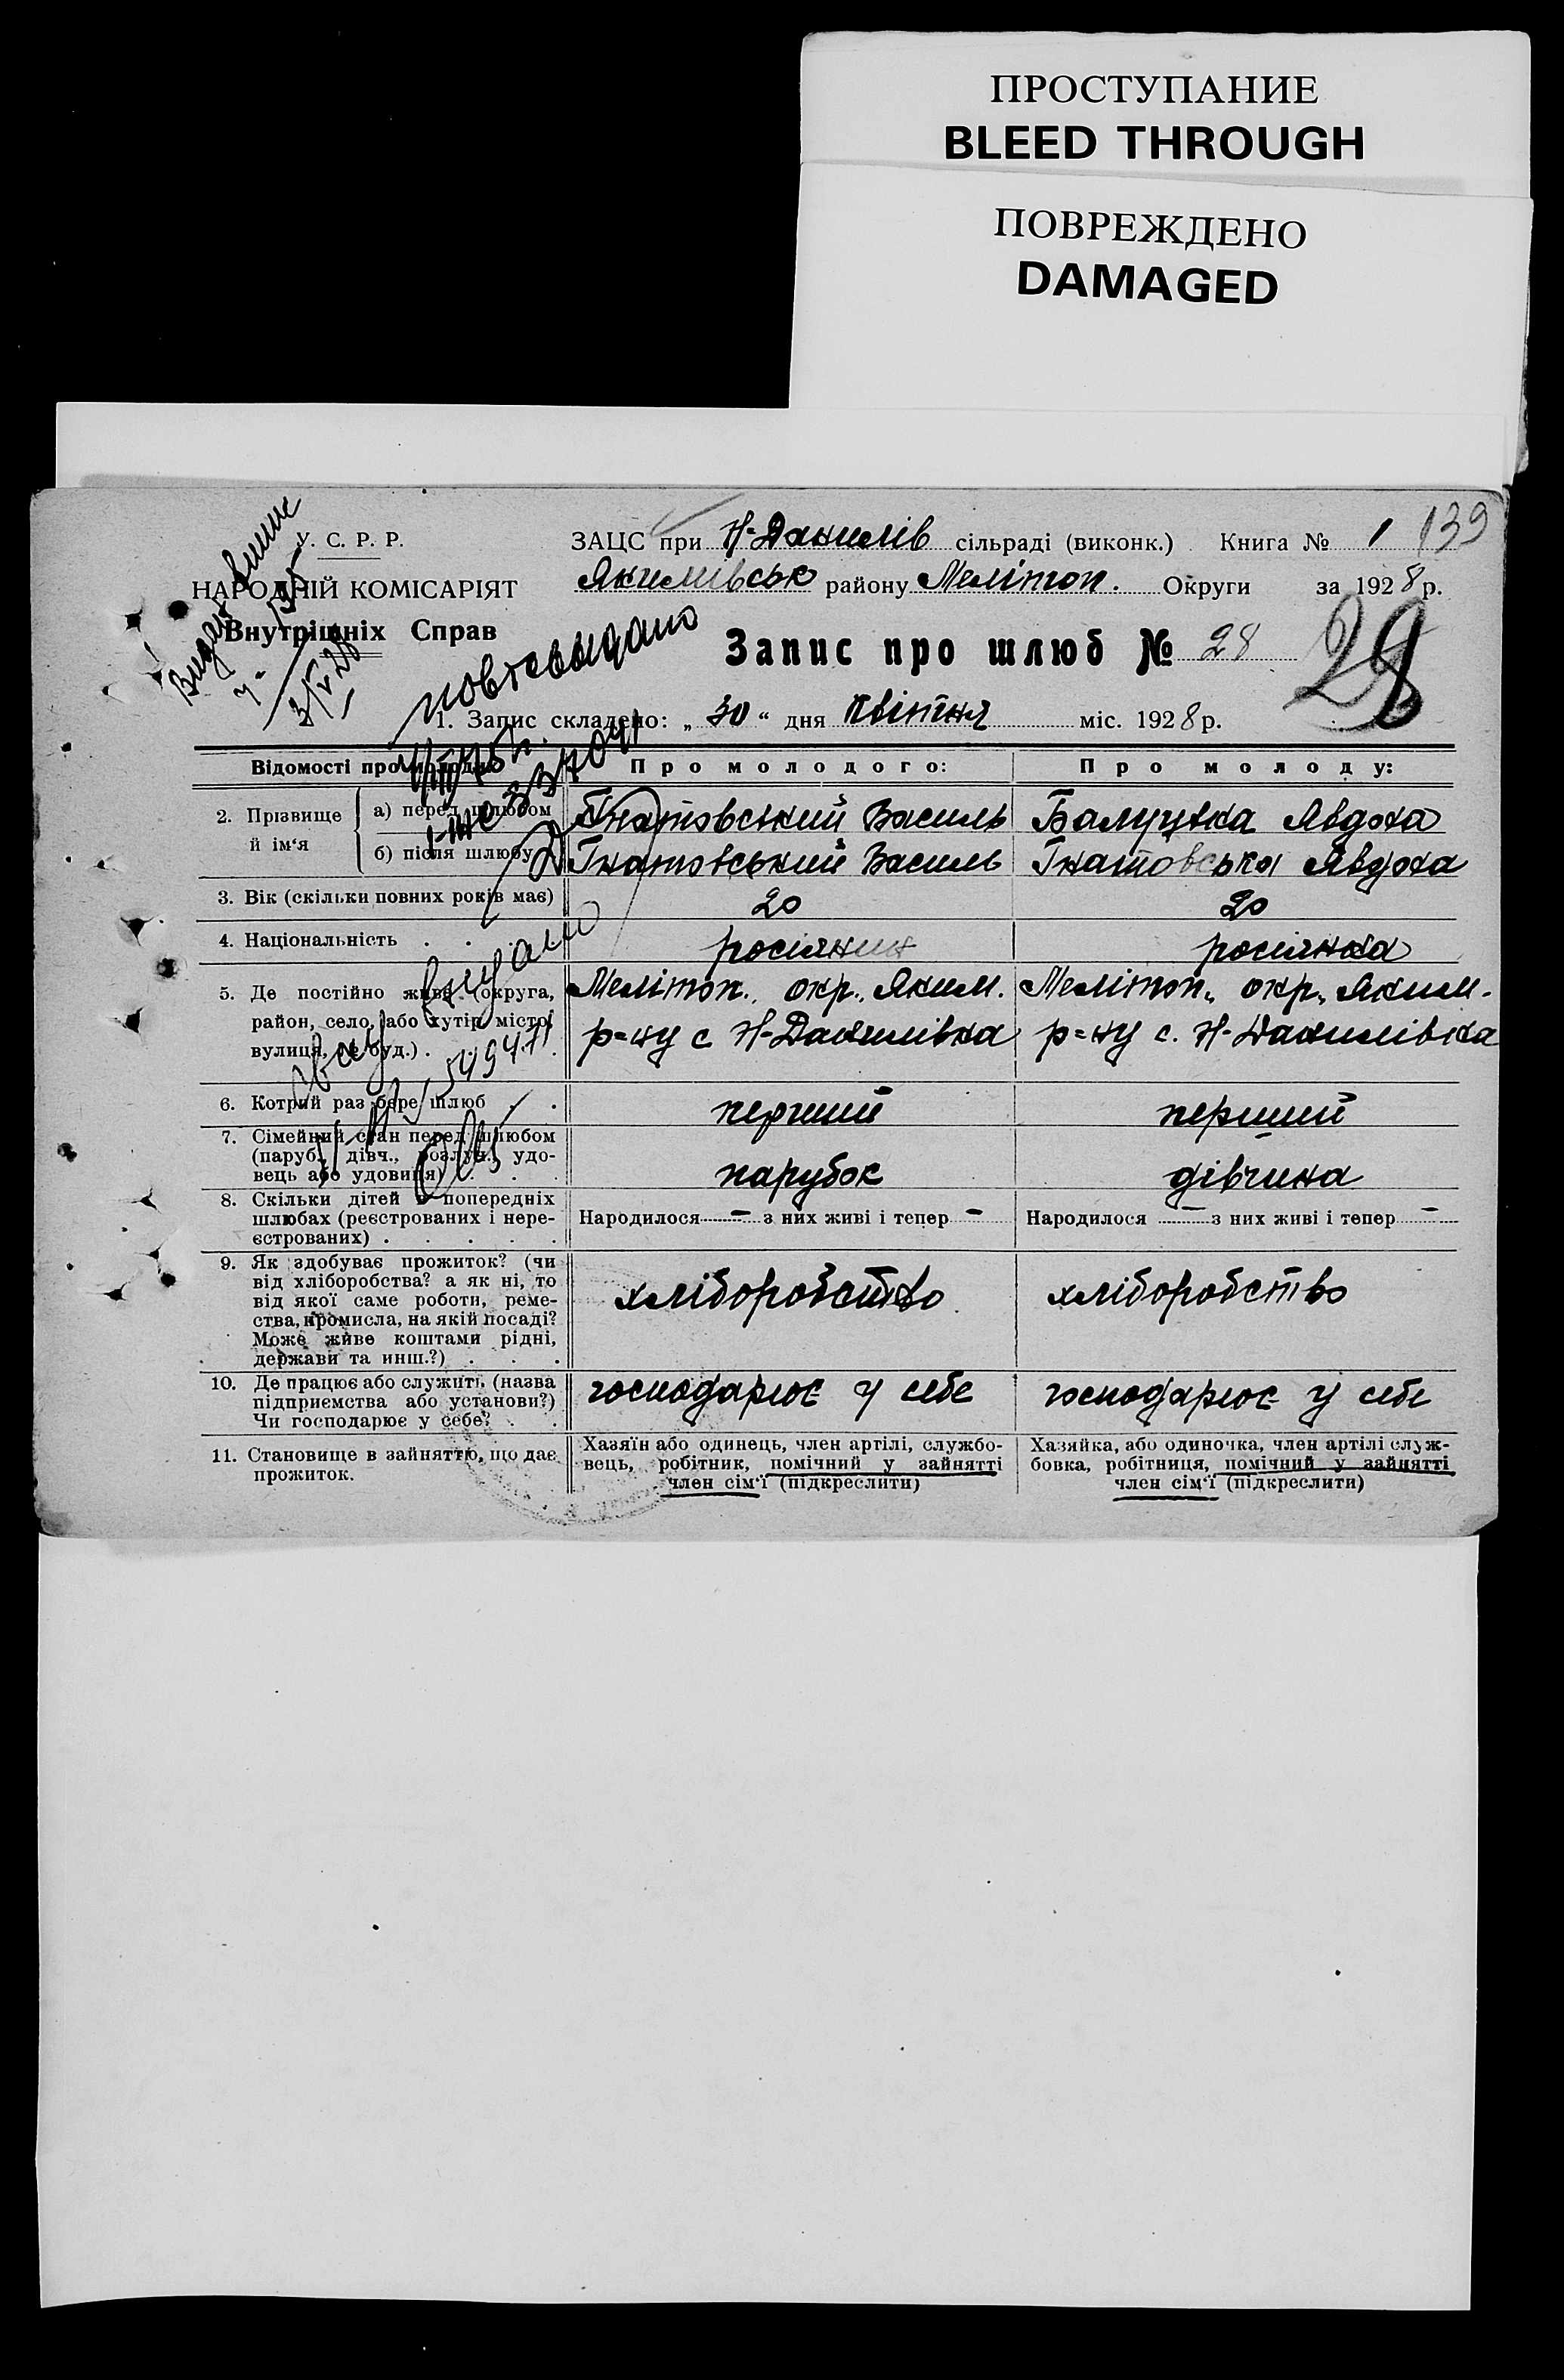 ПРОСТУПАНИЕ
BLEED THROUGH
ПОВРЕЖДЕНО
DAMAGED
У. С. Р. Р.
НАРОДНІЙ КОМІСАРІЯТ
Внутрішніх Справ
ЗАЦС при Н-Данилів сільраді (виконк.) Книга № 1 139
Якимівськ району Меліто́п. Округи за 1928 р.
Запис про шлюб № 28 28
1. Запис складено: „ 30 “ дня Квітня міс. 1928 р.
Відомості про молодих Про молодого: Про молоду:
2. Прізвище й ім‘я
а) перед шлюбом Гнатовський Василь Балуцька Явдоха
б) після шлюбу Гнатовський Василь Гнатовська Явдоха
3. Вік (скільки повних років має) 20 20
4. Національність росіянин росіянка
5. Де постійно живе (округа, Меліто́п. окр. Яким. Меліто́п. окр. Яким.
район, село, або хутір, місто, р=ну с Н-Данилівка р=ну с. Н-Данилівка
вулиця, № буд.)
6. Котрий раз бере шлюб перший перший
7. Сімейний стан перед шлюбом
(паруб., дівч., розлуч., удо-
вець або удовиця) парубок дівчина
8. Скільки дітей в попередніх
шлюбах (реєстрованих і нере- Народилося - з них живі і тепер - Народилося з них живі і тепер -
єстрованих)
9. Як здобуває прожиток? (чи
від хліборобства? а як ні, то
від якої саме роботи, реме- хліборобство хліборобство
ства, промисла, на якій посаді?
Може живе коштами рідні,
держави та инш.?)
10. Де працює або служить (назва господарює у себе господарює у себе
підприємства або установи?)
Чи господарює у себе?
11. Становище в зайняттю, що дає
прожиток.
Хазяїн або одинець, член артілі, службо-
вець, робітник, помічний у зайнятті
член сім‘ї (підкреслити)
Хазяйка, або одиночка, член артілі служ-
бовка, робітниця, помічний у зайнятті
член сім‘ї (підкреслити)